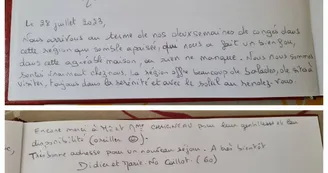 Le 28 juillet 2023,
Nous arrivons au terme de nos deux semaines de congés dans
cette région qui semble apaisée, qui nous a fait un bien fou,
dans cette agréable maison, où rien ne manque. Nous nous sommes
sentis vraiment chez nous. La région offre beaucoup de balades, de sites à
visiter, toujours dans la sérénité et avec le soleil au rendez-vous
Encore merci à Mr et Mme pour leur gentillesse et leur
disponibilité (oreiller 😊)-
Très bonne adresse pour un nouveau séjour. A très bientôt
Didier et Marie-No (60)